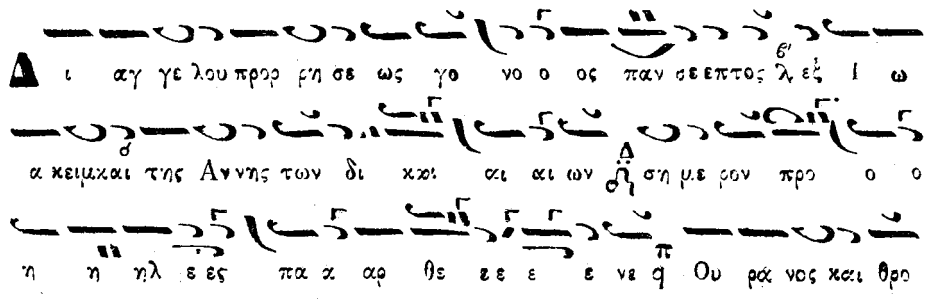 Δι αγ γε λου προρ ρη σε ως γο νο ο ος παν σε επτος λ εξ Ι ω
α κειμ και της Αννης των δι και αι αι ων ση με ρον προ ο ο
η η ηλ ε ες πα α αρ θε ε ε ε ε νε Ου ρα νος και θρο